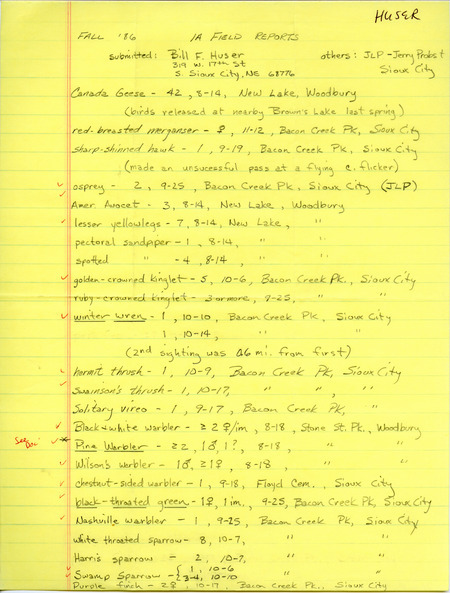 HUSER
FALL '86 IA FIELD REPORTS
submitted: Bill F. Huser others: JLP - Jerry Probst
319 W. 17th St Sioux City
S. Sioux City, NE 68776
Canada Geese - 42, 8-14, New Lake, Woodbury
(birds released at nearby Brown's Lake last spring)
red-breasted merganser - ♀, 11-12, Bacon Creek Pk, Sioux City
sharp-shinned hawk - 1, 9-19, Bacon Creek Pk, Sioux City
(made an unsucessful pass at a flying c. flicker)
osprey - 2, 9-25, Bacon Creek Pk, Sioux City (JLP)
Amer Avocet - 3, 8-14, New Lake, Woodbury
lesser yellowlegs - 7, 8-14, New Lake, "
pectoral sandpiper - 1, 8-14, " "
spotted " - 4, 8-14, " "
golden-crowned kinglet - 5, 10-6, Bacon Creek Pk., Sioux City
ruby-crowned kinglet - 3 or more, 9-25, " "
winter wren - 1, 10-10, Bacon Creek Pk, Sioux City
1, 10-14, " "
(2nd sighting was 0.6 mi. from first)
hermit thrush - 1, 10-9, Bacon Creek Pk, Sioux City
Swainson's thrush - 1, 10-17, " " , "
Solitary vireo - 1, 9-17, Bacon Creek Pk, "
Black & white warbler - ≥ 2 ♀/im, 8-18, Stone St. Pk., Woodbury
See Doc * Pine Warbler - ≥2, 1♂, 1?, 8-18, " "
Wilson's warbler - 1♂, ≥1♀, 8-18, " "
chestnut-sided warbler - 1, 9-18, Floyd Cem., Sioux City
black-throated green - 1♀, 1 im., 9-25, Bacon Creek Pk, Sioux City
Nashville warbler - 1, 9-25, Bacon Creek Pk, Sioux City
white throated sparrow - 8, 10-7, " "
Harris sparrow - 2, 10-7, " "
Swamp Sparrow - { 1, 10-6 " "
3-4, 10-10
Purple finch - 2♀, 10-17, Bacon Creek Pk., Sioux City